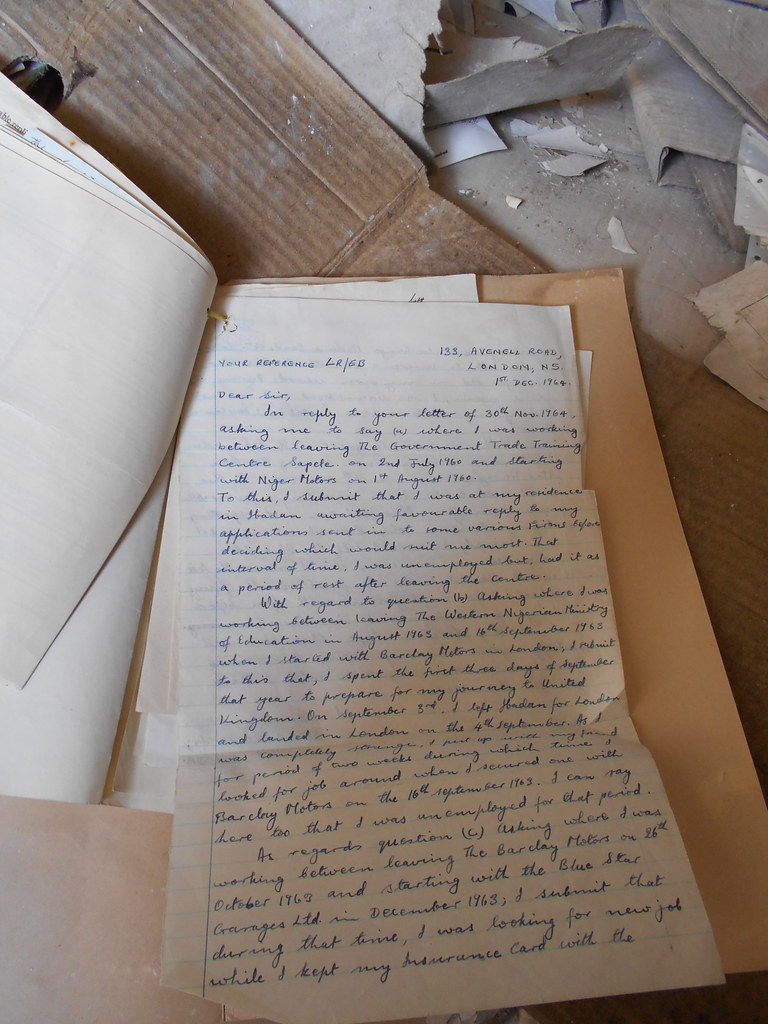 YOUR REFERENCE LR/EB
133, AVENELL ROAD,
LONDON, N5.
1ST DEC. 1964.
Dear Sir,
In reply to your letter of 30th Nov. 1964,
asking me to say (a) where I was working
between leaving The Government Trade Training
Centre Sapele. on 2nd July 1960 and starting
with Niger Motors on 1st August 1960.
To this, I submit that I was at my residence
in Ibadan awaiting favourable reply to my
applications sent in to some various Firms before
deciding which would suit me most. That
interval of time, I was unemployed but, had it as
a period of rest after leaving the centre.
With regard to question (b) Asking where I was
working between leaving The Western Nigerian Ministry
of Education in August 1963 and 16th September 1963
when I started with Barclay Motors in London; I submit
to this that, I spent the first three days of September
that year to prepare for my journey to United
Kingdom. On September 3rd. I left Ibadan for London
and landed in London on the 4th September. As I
was completely strange, I put up with my friend
for period of two weeks during which time I
looked for job around when I secured one with
Barclay Motors on the 16th September 1963. I can say
here too that I was unemployed for that period.
As regards question (c) Asking where I was
working between leaving The Barclay Motors on 26th
October 1963 and starting with the Blue Star
Garages Ltd. in December 1963; I submit that
during that time, I was looking for new job
while I kept my Insurance Card with the